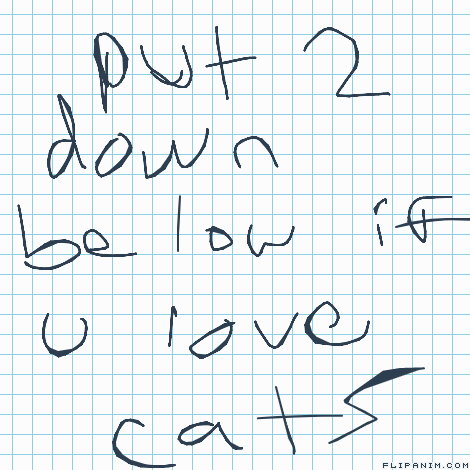 put 2
down
below if
u love
cats
FLIPANIM.COM